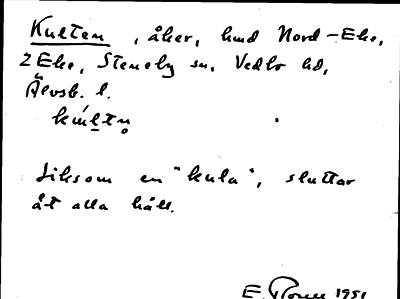 Kulten, åker, hmd Nord-Eke,
2 Eke, Steneby sn, Vedbo hd,
Älvsb. l.
kúltn̥
Liksom en "kula", sluttar
åt alla håll.
E. 1951